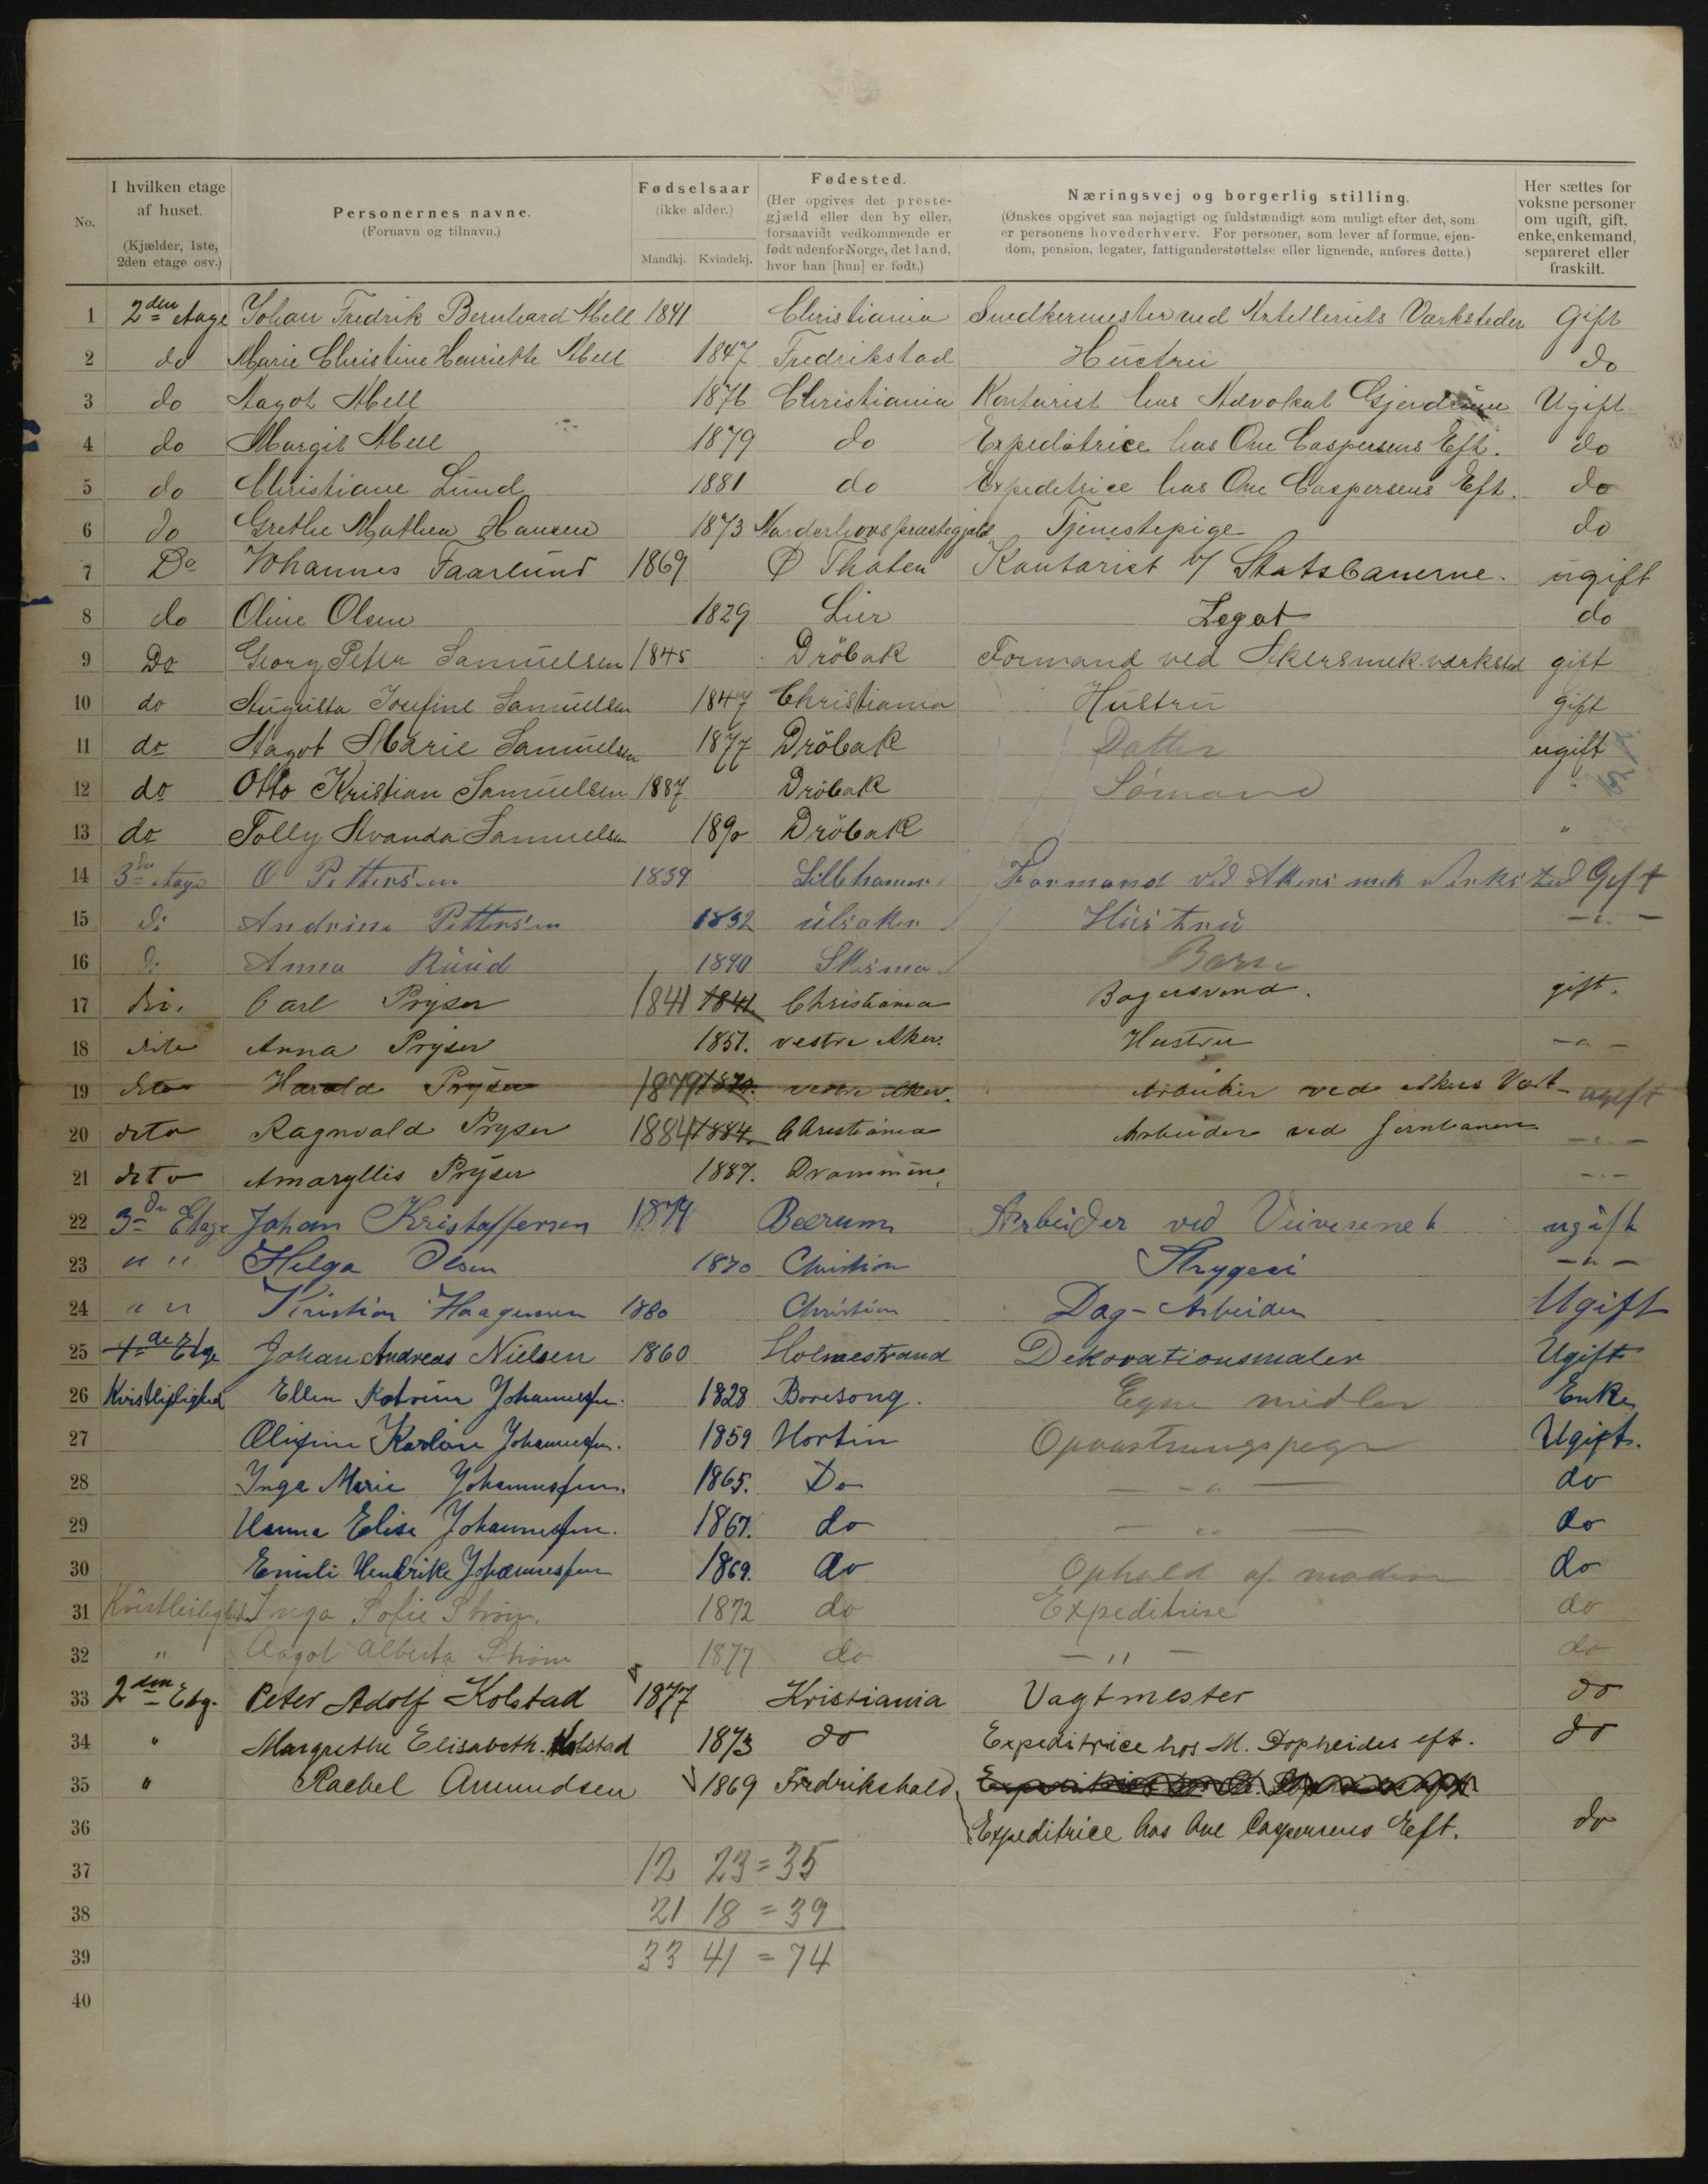 No.
I hvilken etage af huset.
(Kjælder, 1ste, 2den etage osv.)
Personernes navne.
(Fornavn og tilnavn.)
Fødselsaar
(ikke alder.)
Mandkj. Kvindekj.
Fødested.
(Her opgives det prestegjæld eller den by eller, forsaavidt vedkommende er født udenfor Norge, det land, hvor han [hun] er født.)
Næringsvej og borgerlig stilling.
(Ønskes opgivet saa nøjagtigt og fuldstændigt som muligt efter det, som er personens hovederhverv. For personer, som lever af formue, ejendom, pension, legater, fattigunderstøttelse eller lignende, anføres dette.)
Her sættes for voksne personer om ugift, gift, enke, enkemand, separeret eller fraskilt.
1 2den Etage Johan Fredrik Bernhard Abell 1841 Christiania Snedkermester ved Artelleriets Værksteder Gift
2 do Marie Christine Henriette Abell 1847 Fredrikstad Hustru do
3 do Aagot Abell 1876 Christiania Kontorist hos Advokat Gjerdrum Ugift
4 do Margit Abell 1879 do Expeditrice hos Ove Caspersens Eft. do
5 do Christiane Lund 1881 do Expeditrice hos Ove Caspersens Eft. do
6 do Grethe Mathea Hansen 1873 Norderhovs præstegjeld Tjenestepige do
7 Do Johannes Faarlund 1869 Ø Thoten Kontorist v/ Statsbanerne. ugift
8 do Oline Olsen 1829 Lier Legat do
9 Do Georg Peter Samuelsen 1845 Dröbak Formand ved Akersmek. værksted gift
10 do Augusta Josefine Samuelsen 1847 Christiania Hustru gift
11 do Aagot Marie Samuelsen 1877 Dröbak Datter ugift
12 do Otto Kristian Samuelsen 1887 Dröbak Sømand "
13 do Tolly Wanda Samuelsen 1890 Dröbak "
14 3die etage O Pettersen 1839 Lillehamer Formand ved Akers mek Verksted Gift
15 do Andrine Pettersen 1832 ulsaker Hustru -"-
16 do Anna Ruud 1890 Barn
17 do. Carl Prÿser 1841 1841. Christiania Bagersvend. gift.
18 dito Anna Prÿser 1851. vestre Aker. Hustru -"-
19 dito Harald Prÿser 1879 vestre Aker. Arbeider ved Akers Værk ugift
20 dito Ragnvald Prÿser 1884 1884. Christiania Arbeider ved Jernbanen -"-
21 dito Amaryllis Prÿser 1887. Drammen. -"-
22 3de Etage Johan Kristoffersen 1874 Beerum Arbeider ved Veivesenet ugift
23 " " Helga Olsen 1870 Christian Strygeri -"-
24 " " Kristian Haagensen 1880 Christian Dag-Arbeider Ugift
25 4de Etge Johan Andreas Nielsen 1860 Holmestrand Dekorationsmaler Ugift
26 Kvistleilighed Ellen Katrine Johannesen. 1828 Egne midler Enke
27 Olufine Karline Johannesen. 1859 Horten Opvartningspige Ugift.
28 Inga Marie Johannesen. 1865. Do -"- do
29 Hanna Elise Johannesen. 1867. do -"- do
30 Emili Hendrike Johannesen 1869. do Ophold af moderen do
31 Kvistleilighed Inga Sofie Strøm. 1872 do Expeditrise do
32 " Aagot Alberta Strøm 1877 do -"- do
33 2den Etg. Peter Adolf Kolstad 1877 Kristiania Vagtmester do
34 " Margrethe Elisabeth Kolstad 1873 do Expeditrice hos M. Dopheides eft. do
35 " Rachel Amundsen 1869 Fredrikshald
36 Expeditrice hos Ove Caspersens Eft. do
37 12 23 = 35
38 21 18 = 39
39 33 41 = 74
40